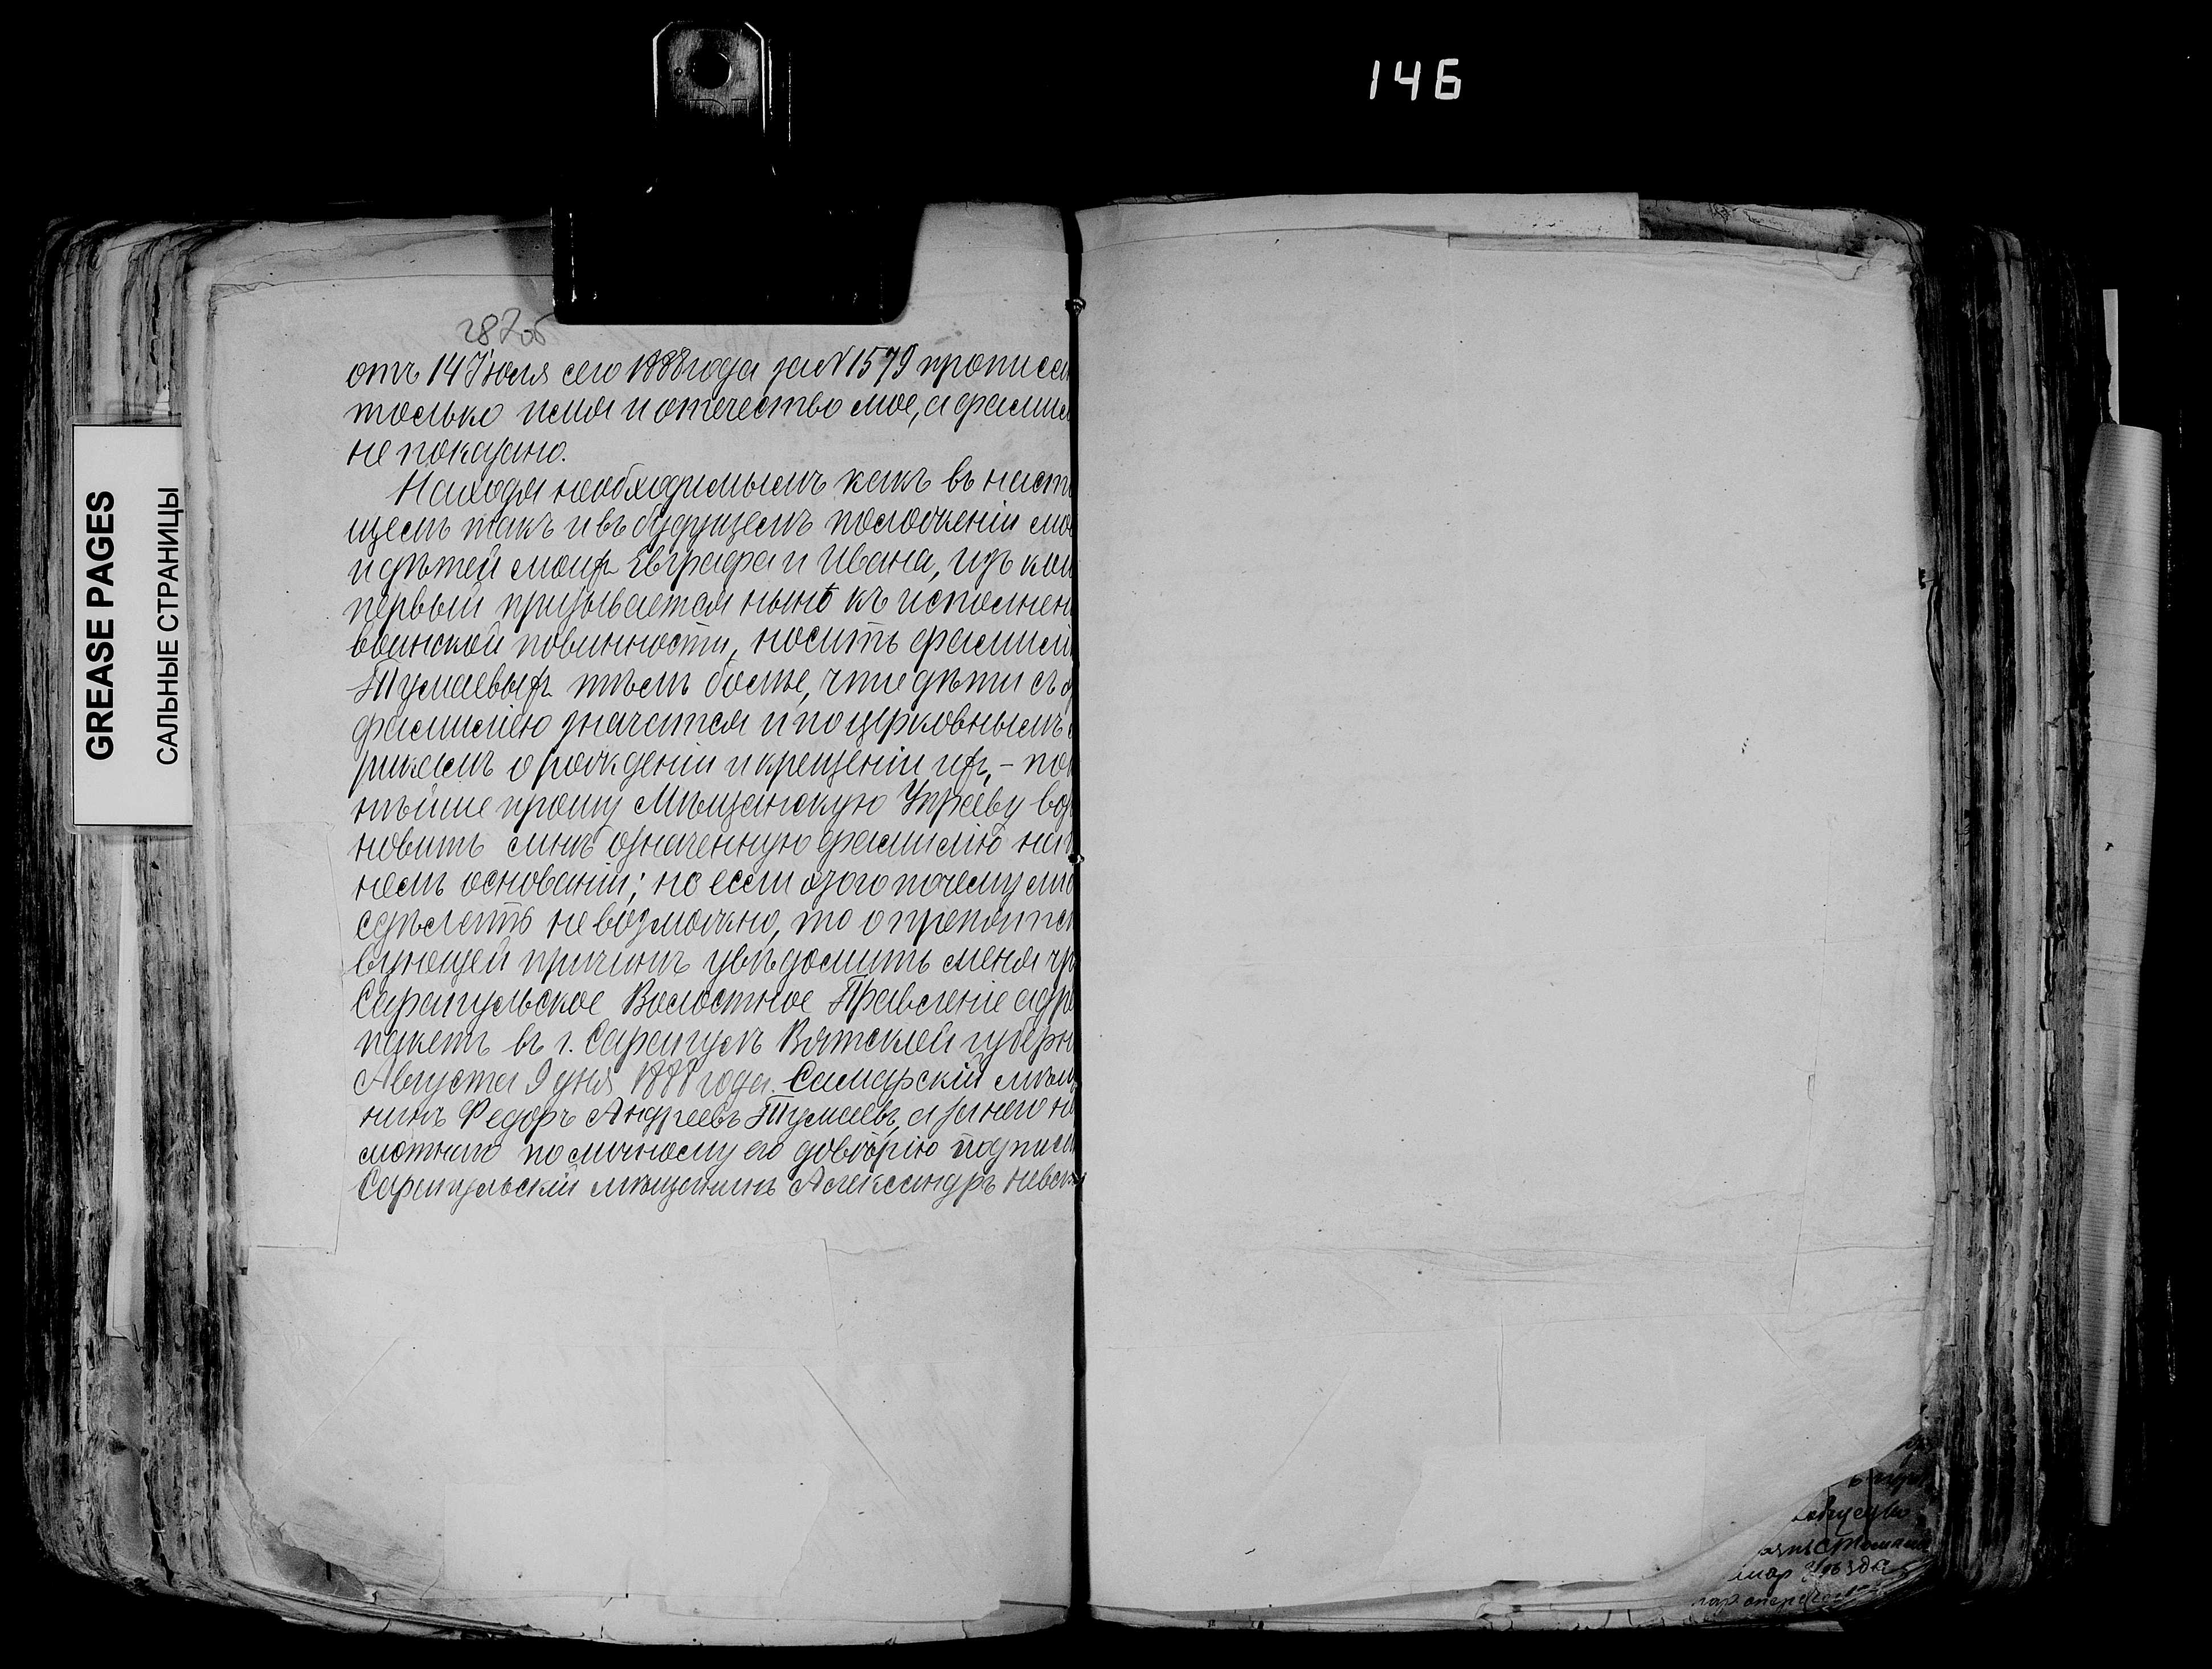 146
GREASE PAGES
САЛЬНЫЕ СТРАНИЦЫ
287об
отъ 14 Іюля сего 1888 года за N 1579 прописа
только имя и отечество мое, а фамил
не показано.
Находя необходимымъ какъ въ насто
щемъ такъ и въ будущемъ положеніи мое
и дѣтей моихъ Евграфа и Ивана, изъ кои
первый призывается нынѣ къ исполнен
воинской повинности, носить фамилі
Тумаевыхъ тѣмъ болѣе, что дѣти съ э
фамиліею значатся и по церковнымъ
рикамъ о рожденіи и крещеніи ихъ, – по
нѣйше прошу Мѣщанскую Управу воз
новить мнѣ означенную фамилію на
немъ основаніи; но если этого почему ли
сдѣлать не возможно, то о препятс
вующей причинѣ увѣдомить меня чр
Сарапульское Волостное Правленіе адре
пакетъ въ г. Сарапулъ Вятской губерн
Августа 9 дня 1888 года. Самарскій мѣщ
нинъ Федоръ Андреевъ Тумаевъ, а за него н
мотнаго по личному его довѣрію подписа
Сарапульскій мѣщанинъ Александръ Невск